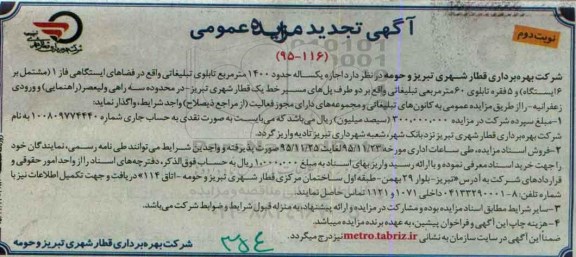 آگهی تجدید مزایده عمومی
نوبت دوم
(۹۵-۱۱۶)
شرکت بهره‌برداری قطار شهری تبریز و حومه در نظر دارد اجاره یکساله حدود ۱۴۰۰ مترمربع تابلوی تبلیغاتی واقع در فضاهای ایستگاهی فاز ۱ (مشتمل بر
۶ ایستگاه) و ۵ فقره تابلوی ۶۰ مترمربعی تبلیغاتی واقع بر دو طرف پل‌های مسیر خط یک قطار شهری تبریز - در محدوده سه راهی ولیعصر (راهنمایی) و ورودی
زعفرانیه - را از طریق مزایده عمومی به کانون‌های تبلیغاتی و مجموعه‌های دارای مجوز فعالیت (از مراجع ذیصلاح) واجد شرایط، واگذار نماید:
۱- مبلغ سپرده شرکت در مزایده ۳۰۰,۰۰۰,۰۰۰ (سیصد میلیون) ریال می‌باشد که می‌بایست به صورت نقدی به حساب جاری شماره ۱۰۰۸۰۹۷۷۴۴۴۰ به نام
شرکت بهره‌برداری قطار شهری تبریز نزد بانک شهر، شعبه شهرداری تبریز تادیه و واریز گردد.
۲- فروش اسناد مزایده، طی ساعات اداری مورخه ۹۵/۱۱/۲۳ لغایت ۹۵/۱۱/۲۵ صورت پذیرفته و واجدین شرایط می‌توانند طی نامه رسمی، نمایندگان خود
را جهت خرید اسناد معرفی نموده و با ارائه رسید واریز بهای اسناد به مبلغ ۱,۰۰۰,۰۰۰ ریال به حساب فوق الذکر، دفترچه‌های اسناد را از واحد امور حقوقی و
قراردادهای شرکت به آدرس «تبریز - بلوار ۲۹ بهمن - طبقه اول ساختمان مرکزی قطار شهری تبریز و حومه - اتاق ۱۱۴» دریافت و جهت تکمیل اطلاعات نیز با
شماره تلفن: ۸-۰۴۱۳۳۲۹۰۰۰۱ داخلی ۱۰۷۱ و ۱۱۲۱ تماس حاصل نمایند.
۳- سایر شرایط مطابق اسناد مزایده بوده و مشارکت در مزایده و ارائه پیشنهاد، به منزله قبول شرایط و ضوابط شرکت می‌باشد.
۴- هزینه چاپ این آگهی و فراخوان پیشین، به عهده برنده مزایده میباشد.
ضمناً این آگهی در سایت سازمان به نشانی metro.tabriz.ir نیز درج میگردد.
شرکت بهره‌برداری قطار شهری تبریز و حومه